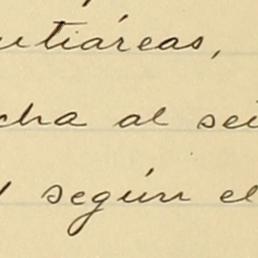 utiáreas,
cha al sei
según el